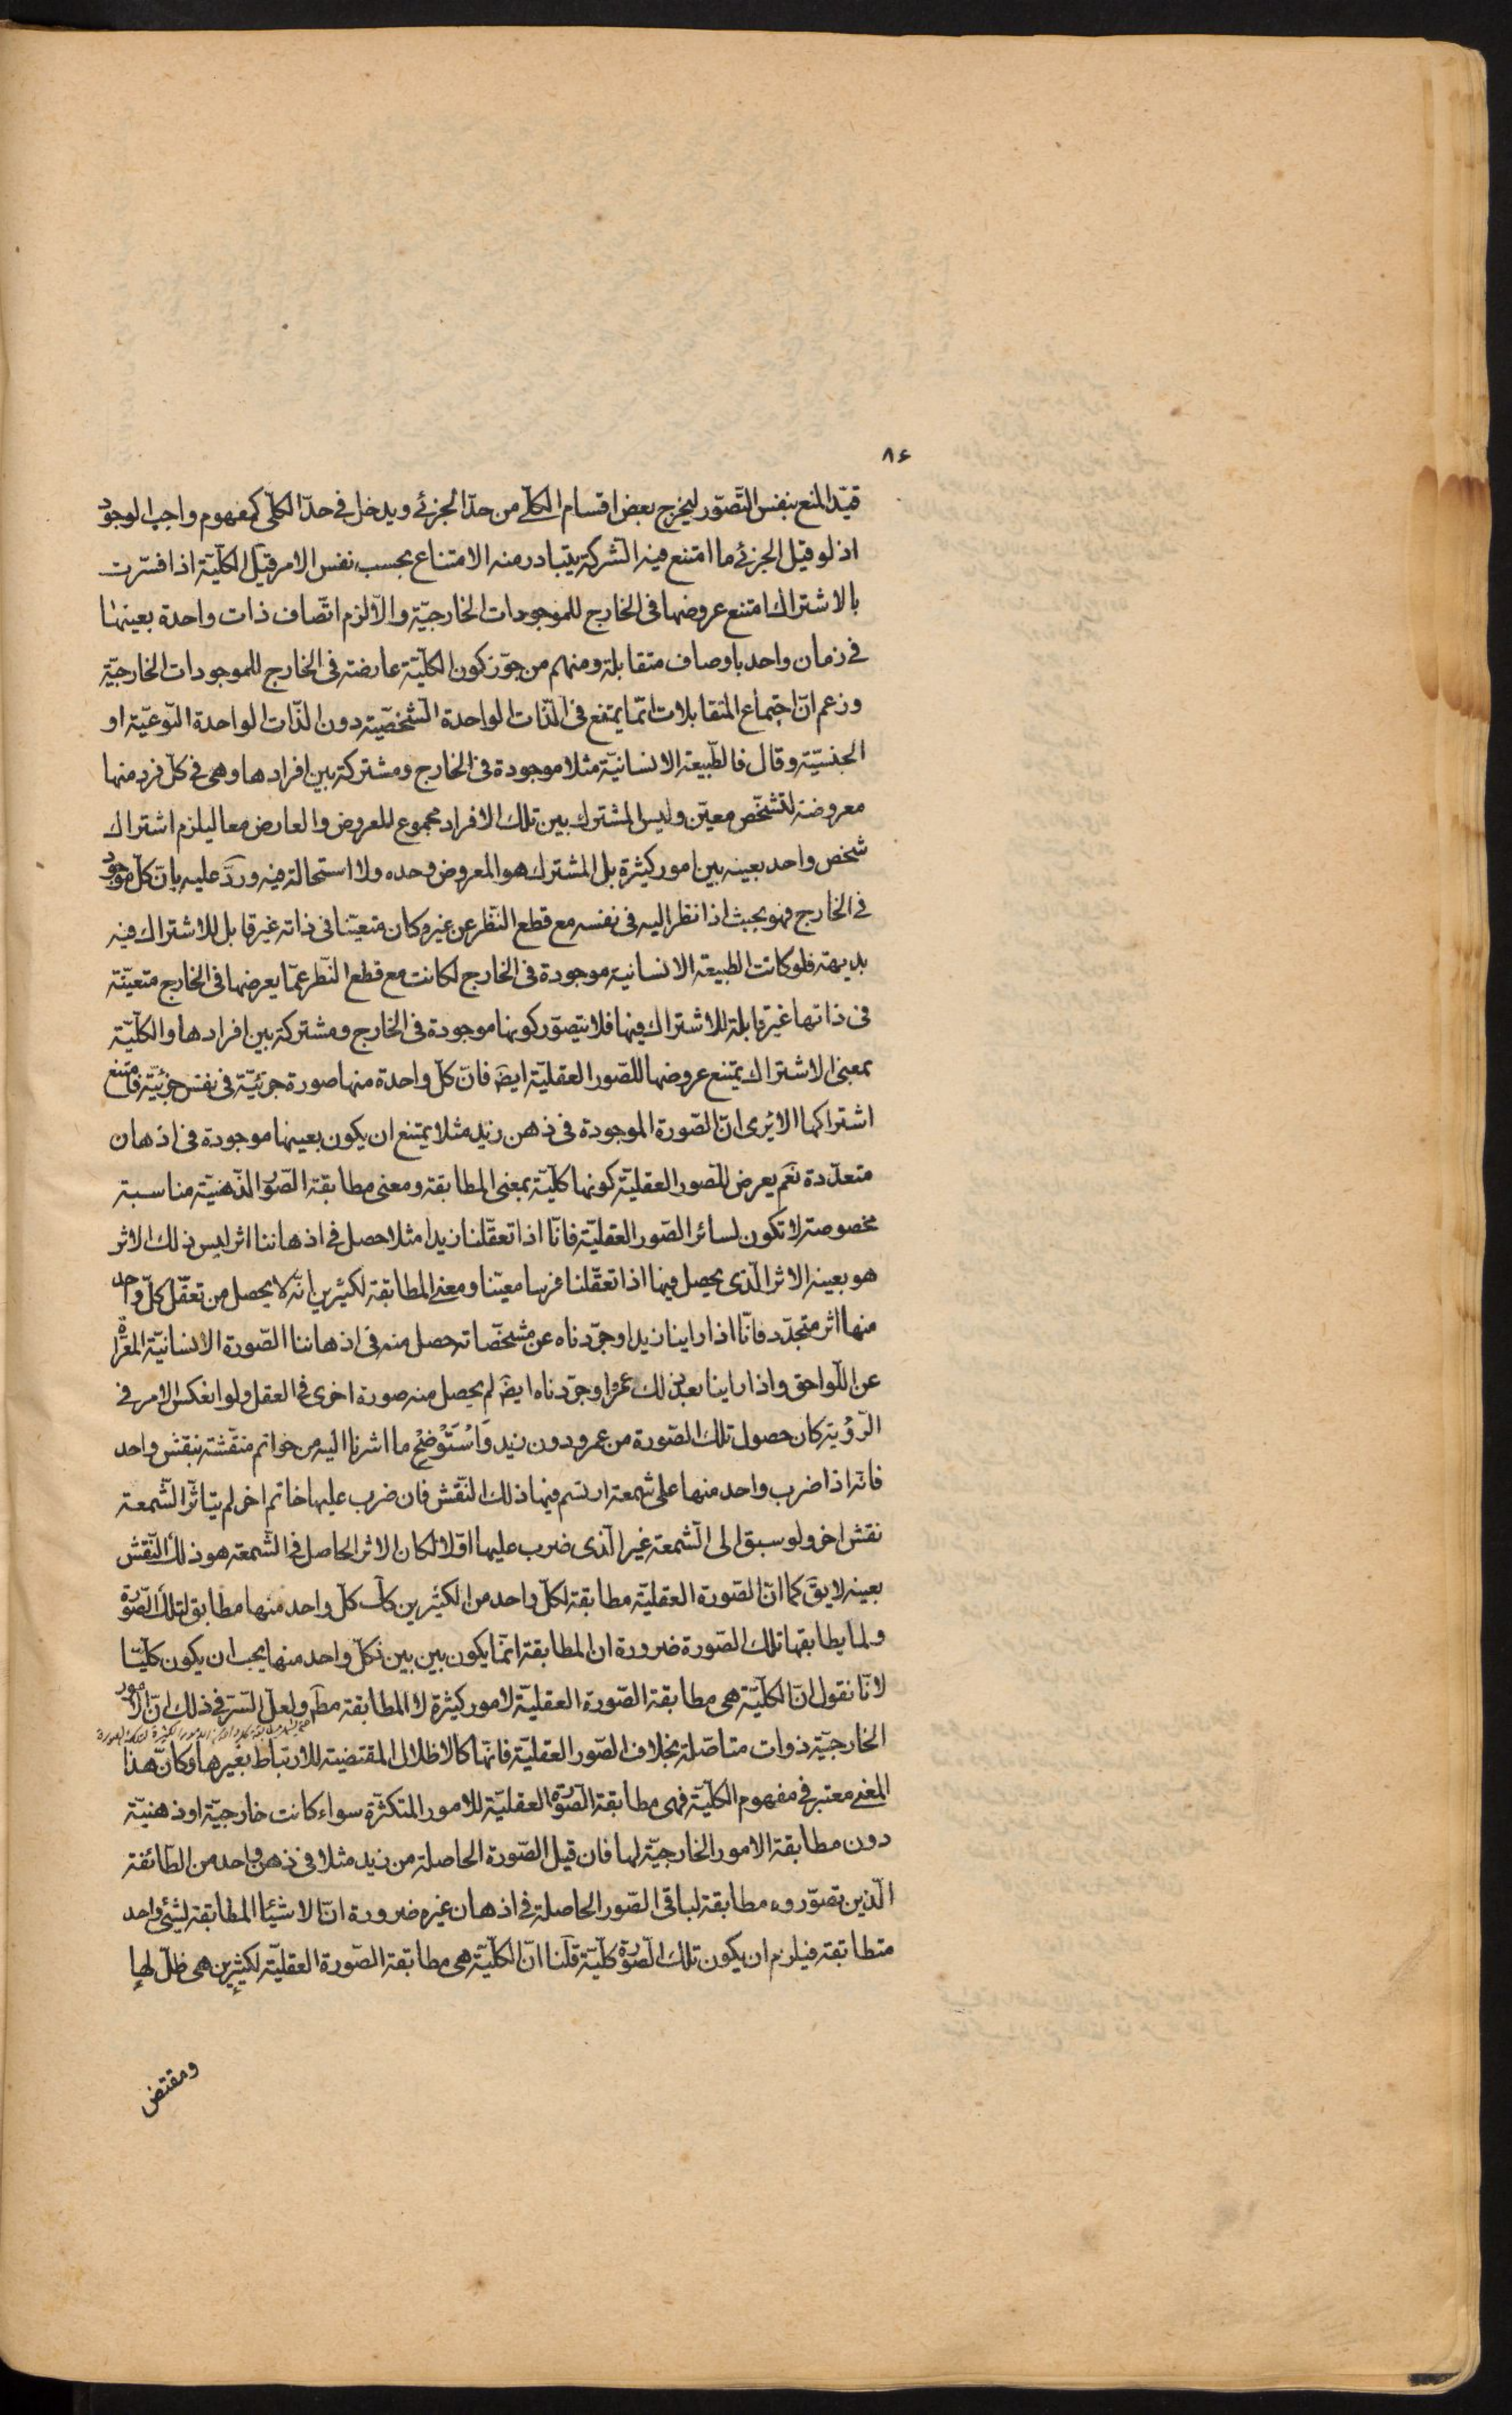 ٨٤
قيّد المنع بنفس التّصوّر ليخرج بعض اقسام الكلّي من حدّ الجزئي ويدخل في حدّ الكلّي كمفهوم واجب الوجود
اذ لو قيل الجزئي ما امتنع فيه الشّركة يتبادر منه الامتناع بحسب نفس الامر قيل الكلّيّة اذا فسّرت
بالاشتراك امتنع عروضها في الخارج للموجودات الخارجيّة والّا لزم اتّصاف ذات واحدة بعينها
في زمان واحد باوصاف متقابلة ومنهم من جوّز كون الكلّيّة عارضة في الخارج للموجودات الخارجيّة
وزعم انّ اجتماع المتقابلات انّما يمتنع في الذّات الواحدة الشّخصيّة دون الذّات الواحدة النّوعيّة او
الجنسيّة وقال فالطّبيعة الانسانيّة مثلا موجودة في الخارج ومشتركة بين افرادها وهي في كلّ فرد منها
معروضة لتشخّص معيّن وليس المشترك بين تلك الافراد مجموع المعروض والعارض معا ليلزم اشتراك
شخص واحد بعينه بين امور كثيرة بل المشترك هو المعروض وحده ولا استحالة فيه وردّ عليه بانّ كلّ موجود
في الخارج فهو بحيث اذا نظر اليه في نفسه مع قطع النّظر عن غيره كان متعيّنا في ذاته غير قابل للاشتراك فيه
بديهة فلو كانت الطبيعة الانسانية موجودة في الخارج لكانت مع قطع النّظر عمّا يعرضها في الخارج متعيّنة
في ذاتها غير قابلة للاشتراك فيها فلا يتصوّر كونها موجودة في الخارج ومشتركة بين افرادها والكلّيّة
بمعنى الاشتراك يمتنع عروضها للصّور العقليّة ايضَ فانّ كلّ واحدة منها صورة جزئيّة في نفس جزئيّة فامتنع
اشتراكها الا يُرى انّ الصّورة الموجودة في ذهن زيد مثلا يمتنع ان يكون بعينها موجودة في اذهان
متعدّدة نَعَم يعرض للصّور العقليّة كونها كلّيّة بمعنى المطابقة ومعنى مطابقة الصّور الذّهنيّة مناسبة
مخصوصة لا تكون لسائر الصّور العقليّة فانّا اذا تعقّلنا زيدا مثلا حصل في اذهاننا اثر ليس ذلك الاثر
هو بعينه الاثر الّذى يحصل فيها اذا تعقّلنا فرسا معيّنا ومعنى المطابقة لكثيرين انّه لا يحصل من تعقّل كلّ واحد
منها اثر متجدّد فانّا اذا راينا زيدا وجرّدناه عن مشخّصاته حصل منه في اذهاننا الصّورة الانسانيّة المعرّاة
عن اللّواحق واذا راينا بعد ذلك عمروا وجرّدناه ايضَ لم يحصل منه صورة اخرى في العقل ولو انعكس الامر في
الرّؤية كان حصول تلك الصّورة من عمرو دون زيد وَاسْتَوْضِحْ ما اشرنا اليه من خواتم منقّشة بنقش واحد
فانّه اذا ضرب واحد منها على شمعة ارتسم فيها ذلك النّقش فان ضرب عليها خاتم اخر لم يتاثّر الشّمعة
نقش اخر ولو سبق الى الشّمعة غير الّذى ضرب عليها اوّلا لكان الاثر الحاصل في الشّمعة هو ذلك النّقش
بعينه لا يقَ كما انّ الصّورة العقليّة مطابقة لكلّ واحد من الكثيرين كك كلّ واحد منها مطابق لتلك الصّورة
ولما يطابقها تلك الصّورة ضرورة ان المطابقة انّما يكون بين بين فكلّ واحد منها يجب ان يكون كلّيّا
لانّا نقول انّ الكلّيّة هي مطابقة الصّورة العقليّة لامور كثيرة لا المطابقة مطَ ولعلّ السّر في ذلك انّ الامور
الخارجيّة ذوات متاصّلة بخلاف الصّور العقليّة فانّها كالاظلال المقتضية للارتباط بغيرها وكانّ هذا
المعنى معتبر في مفهوم الكلّيّة فهى مطابقة الصّورة العقليّة للامور المتكثّرة سواء كانت خارجيّة او ذهنيّة
دون مطابقة الامور الخارجيّة لها فان قيل الصّورة الحاصلة من زيد مثلا في ذهن واحد من الطّائفة
الّذين تصوّروه مطابقة لباقى الصّور الحاصلة في اذهان غيره ضرورة انّ الاشيئا المطابقة لشئ واحد
متطابقة فيلزم ان يكون تلك الصّورة كلّيّة قلنا انّ الكلّيّة هي مطابقة الصّورة العقليّة لكثيرين هى ظلّ لها
ومقتض